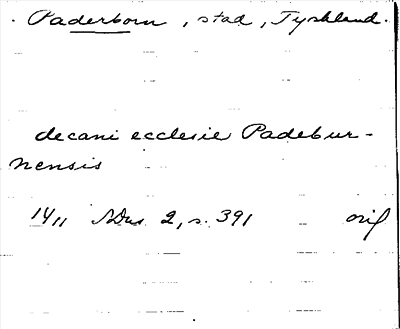 Paderborn, stad, Tyskland.
decani ecclesie Padebur-
nensis
1411 SDns 2, s. 391 orig